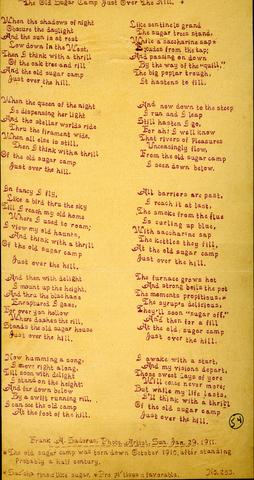 "The Old Sugar Camp Just Over the Hill."
When the shadows of night
Obscure the daylight
And the sun is at rest
Low down in the West,
Then I think with a thrill
Of the oak tree and rill
And the old sugar camp
Just over the hill.
When the queen of the night
Is dispensing her light
And the stellar worlds ride
Thru the firmament wide,
When all else is still,
Then I think with a thrill
Of the old sugar camp
Just over the hill.
In fancy I fly,
Like a bird thru the sky
Till I reach my old home
Where I used to roam;
I view my old haunts,
And think with a thrill
Of the old sugar camp
Just over the hill.
And then with delight
I mount up the height,
And thru the blue haze
Enraptured I gaze;
For over yon hollow
Where dashes the rill,
Stands the old sugar house
Just over the hill.
Now humming a song
I move right along,
Till soon with delight
I stand on the height;
And far down below
By a swift running rill,
I can see the old camp
At the foot of the hill.
Like sentinels grand
The sugar trees stand,
While a saccharine sap
Exudes from the tap;
And passing on down
By the way of the "quill,"
The big poplar trough,
It hastens to fill.
And now down to the steep
I run and I leap
Still hasten I go,
For ah! I well know
That rivers of pleasures
Unceasingly flow,
From the old sugar camp
I seen down below.
All barriers are past,
I reach it at last;
The smoke from the flue
Is curling up blue,
With saccharine sap
The kettles they fill,
At the old sugar camp
Just over the hill.
The furnace grows hot
And strong boils the pot
The moments propitious,
The syrup's delicious;
They'll soon "sugar off,"
And then for a fill
At the old sugar camp
Just over the hill.
I awake with a start,
And my visions depart,
Those sweet days of yore
Will come never more
But while my life lasts,
I'll think with a thrill
Of the old sugar camp
Just over the hill.
54
Frank A. Photo Artist, Sun. Jan. 29, 1911.
The old sugar camp was torn down October 1910, after standing
Probably a half century.
sugar, favorable. No. 253.